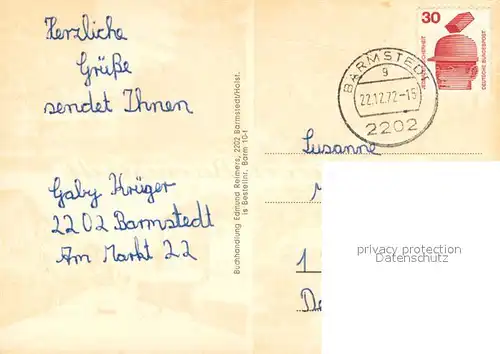 Herzliche
Grüße
sendet Ihnen
Gaby Krüger
2202 Barmstedt
Am Markt 22
Buchhandlung Edmund Reimers, 2202 Barmstedt/Holst.
is Bestellnr. Barm 10-f
30
DEUTSCHE BUNDESPOST
BARMSTEDT
g
22.12.72-15
2202
Susanne
M
1
De
privacy protection
Datenschutz